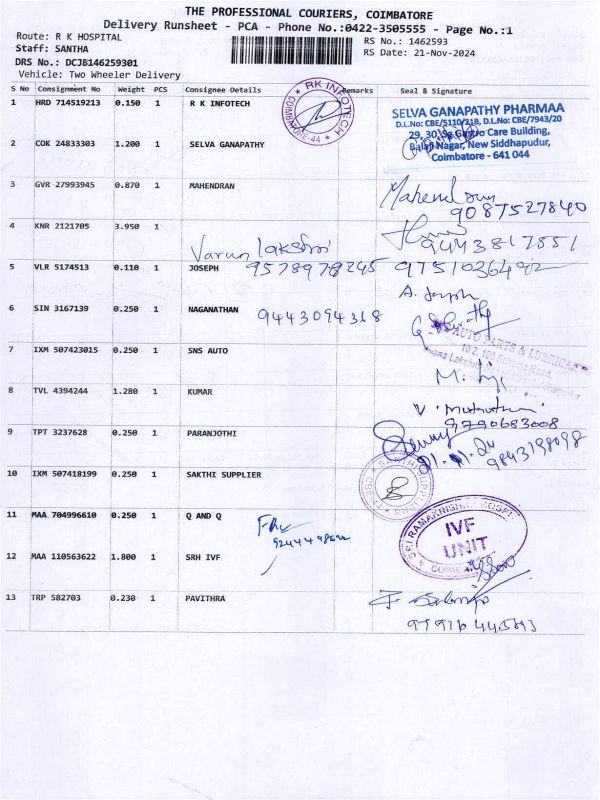 THE PROFESSIONAL COURIERS, COIMBATORE
Delivery Runsheet - PCA - Phone No.:0422-3505555 - Page No.:1
Route: R K HOSPITAL
RS No.: 1462593
Staff: SANTHA
RS Date: 21-Nov-2024
DRS No.: DCJB146259301
Vehicle: Two Wheeler Delivery
S No Consignment No Weight PCS Consignee Details Remarks Seal & Signature
1 HRD 714519213 0.150 1 R K INFOTECH
RK INFOTECH
SELVA GANAPATHY PHARMAA
D.L.No: CBE/5110/21B, D.L.No: CBE/7943/20
29, 30, Sg Gastro Care Building,
Balaji Nagar, New Siddhapudur,
Coimbatore - 641 044
2 COK 24833303 1.200 1 SELVA GANAPATHY
3 GVR 27993945 0.870 1 MAHENDRAN
9087527840
4 KNR 2121705 3.950 1
Varun lakshmi
9443817551
5 VLR 5174513 0.110 1 JOSEPH
9578978245
A. Joseph
6 SIN 3167139 0.250 1 NAGANATHAN
9443094318
AUTO PARTS & LUBRICAN
7 IXM 507423015 0.250 1 SNS AUTO
8 TVL 4394244 1.280 1 KUMAR
9790683008
9 TPT 3237628 0.250 1 PARANJOTHI
21.11.24
9843198098
10 IXM 507418199 0.250 1 SAKTHI SUPPLIER
11 MAA 704996610 0.250 1 Q AND Q
SRI RAMAKRISHNA
IVF
UNIT
12 MAA 110563622 1.800 1 SRH IVF
13 TRP 582703 0.230 1 PAVITHRA